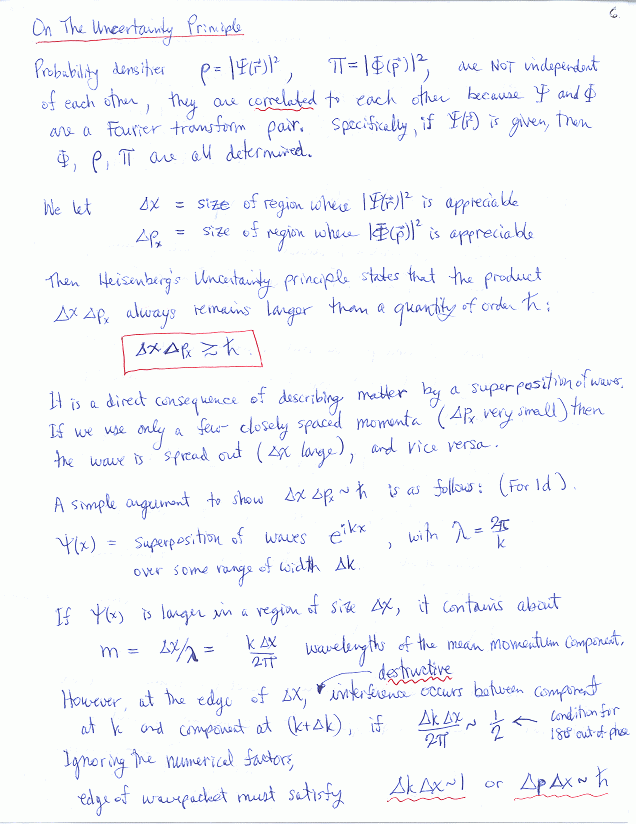 6.
On The Uncertainty Principle
Probability densities ρ = |Ψ(r⃗)|², Π = |Φ(p⃗)|², are NOT independent
of each other, they are correlated to each other because Ψ and Φ
are a Fourier transform pair. Specifically, if Ψ(r⃗) is given, then
Φ, ρ, Π are all determined.
We let Δx = size of region where |Ψ(r⃗)|² is appreciable
Δpₓ = size of region where |Φ(p⃗)|² is appreciable
Then Heisenberg's Uncertainty principle states that the product
Δx Δpₓ always remains larger than a quantity of order ħ:
Δx Δpₓ ≳ ħ
It is a direct consequence of describing matter by a superposition of waves.
If we use only a few closely spaced momenta (Δpₓ very small) then
the wave is spread out (Δx large), and vice versa.
A simple argument to show Δx Δpₓ ~ ħ is as follows: (For 1d).
Ψ(x) = superposition of waves e^{ikx}, with λ = 2π/k
over some range of width Δk.
If Ψ(x) is larger in a region of size Δx, it contains about
m = Δx/λ = kΔx/2π wavelengths of the mean momentum component.
destructive
However, at the edge of Δx, interference occurs between component
at k and component at (k+Δk), if ΔkΔx/2π ~ 1/2 ← condition for
180° out-of-phase
Ignoring the numerical factors,
edge of wavepacket must satisfy ΔkΔx~1 or ΔpΔx~ħ